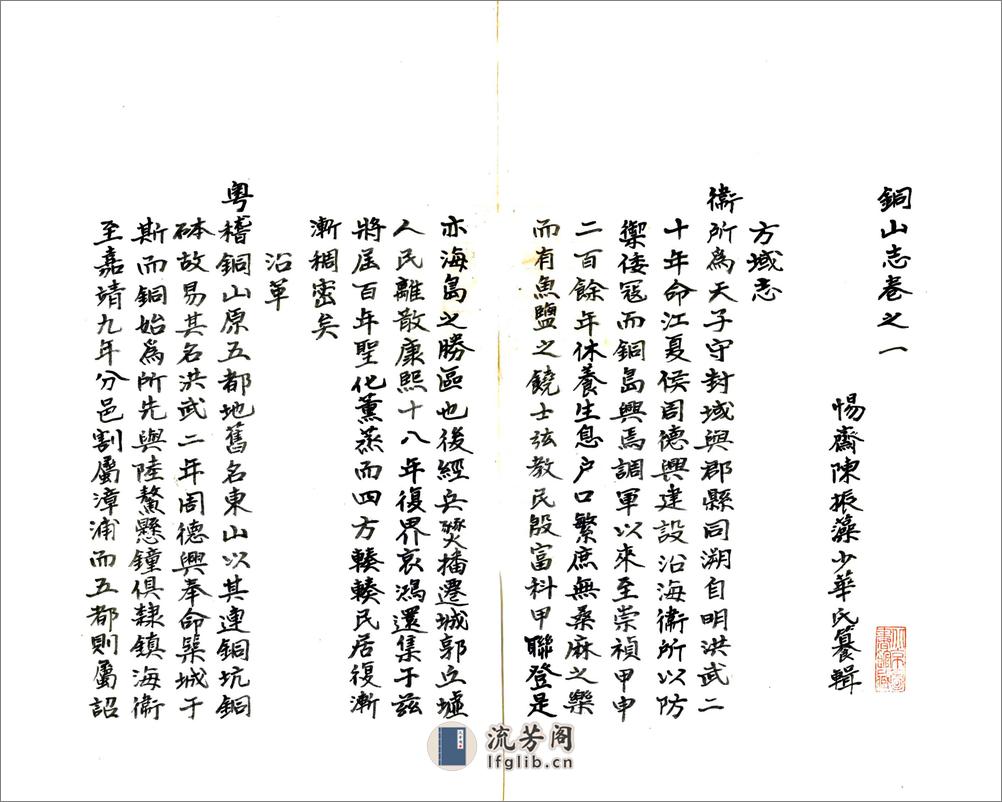 銅山志卷之一
惕齋陳振藻少華氏纂輯
方域志
衞所為天子守封域與郡縣同溯自明洪武二
十年命江夏侯周德興建設沿海衞所以防
禦倭寇而銅島興焉調軍以來至崇禎甲申
二百餘年休養生息户口繁庶無桑麻之樂
而有魚鹽之饒士弦教民殷富科甲聯登是
亦海島之勝區也後經兵燹播遷城郭丘墟
人民離散康熙十八年復界哀鴻還集于兹
將屆百年聖化薰蒸而四方輳輳民居復漸
漸稠密矣
沿革
粤稽銅山原五都地舊名東山以其連銅坑銅
砵故易其名洪武二年周德興奉命築城于
斯而銅始為所先與陸鰲懸鐘俱隸鎮海衞
至嘉靖九年分邑割屬漳浦而五都則屬詔
流芳阁
lfglib.cn